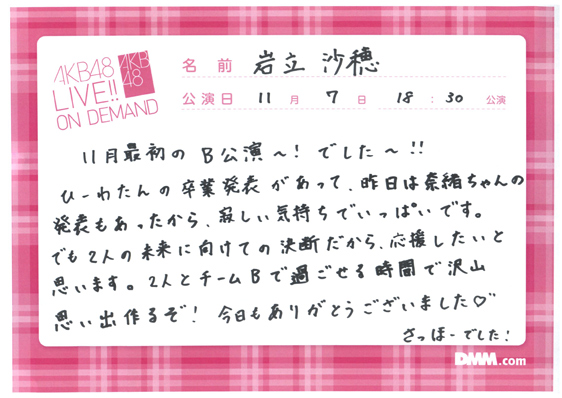 AKB48
LIVE!!
ON DEMAND
AKB
48
名前 岩立 沙穂
公演日 11月 7日 18:30 公演
11月最初の B公演〜!でした〜!!
ひーわたんの卒業発表があって、昨日は奈緒ちゃんの
発表もあったから、寂しい気持ちでいっぱいです。
でも2人の未来に向けての決断だから、応援したいと
思います。2人とチームBで過ごせる時間で沢山
思い出作るぞ! 今日もありがとうございました♡
さっほーでした!
DMM.com